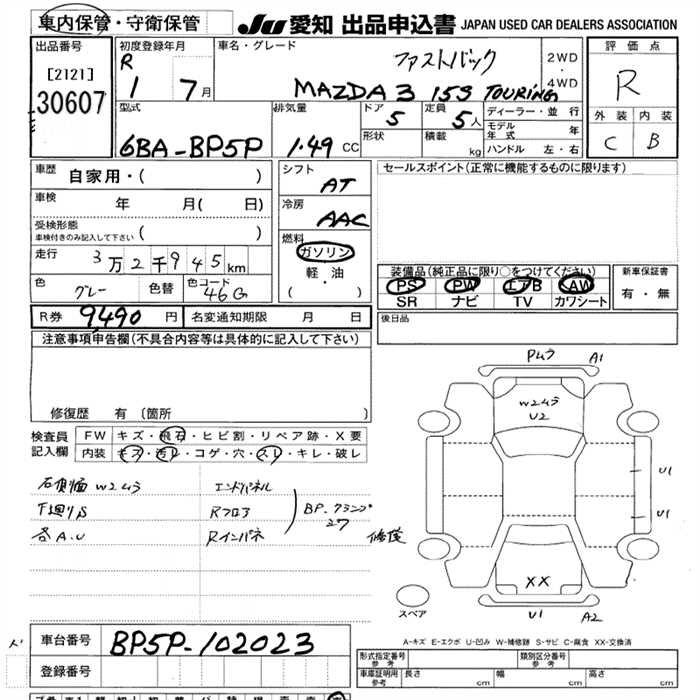 車内保管・守衛保管
JU 愛知 出品申込書 JAPAN USED CAR DEALERS ASSOCIATION
出品番号
[2121]
30607
初度登録年月
R 1 7月
車名・グレード
ファストバック
MAZDA 3 15S TOURING
2WD
・
4WD
評価点
R
外装 内装
C B
型式
6BA-BP5P
排気量
1.49 CC
ドア
5
定員
5人
形状
積載
kg
ディーラー・並行
モデル年式 年
ハンドル 左・右
車歴 自家用・( )
車検 年 月( 日)
受検形態
車検付きのみ記入して下さい ( )
走行 3万2千945km
色 グレー 色替 色コード 46G
シフト
AT
冷房
AAC
燃料
ガソリン
軽・油
( ・ )
セールスポイント(正常に機能するものに限ります)
装備品(純正品に限り○をつけてください)
PS PW エアB AW
SR ナビ TV カワシート
新車保証書
有・無
R券 9,490 円 名変通知期限 月 日
後日品
注意事項申告欄(不具合内容等は具体的に記入して下さい)
修復歴 有〔箇所 〕
検査員記入欄
FW キズ・飛石・ヒビ割・リペア跡・X要
内装 キズ・汚レ・コゲ・穴・スレ・キレ・破レ
右側面W2ムラ エンドパネル
下廻りS Rフロア
各A.U Rインパネ
BP.クランプ
修復
Pムラ A1
W2ムラ
U2
U1
U1
XX
U1 A2
スペア
A-キズ E-エクボ U-凹み W-補修跡 S-サビ C-腐食 XX-交換済
車台番号 BP5P-102023
登録番号
形式指定番号
参考
類別区分番号
参考
車庫証明用
参考
長さ cm 幅 cm 高さ cm